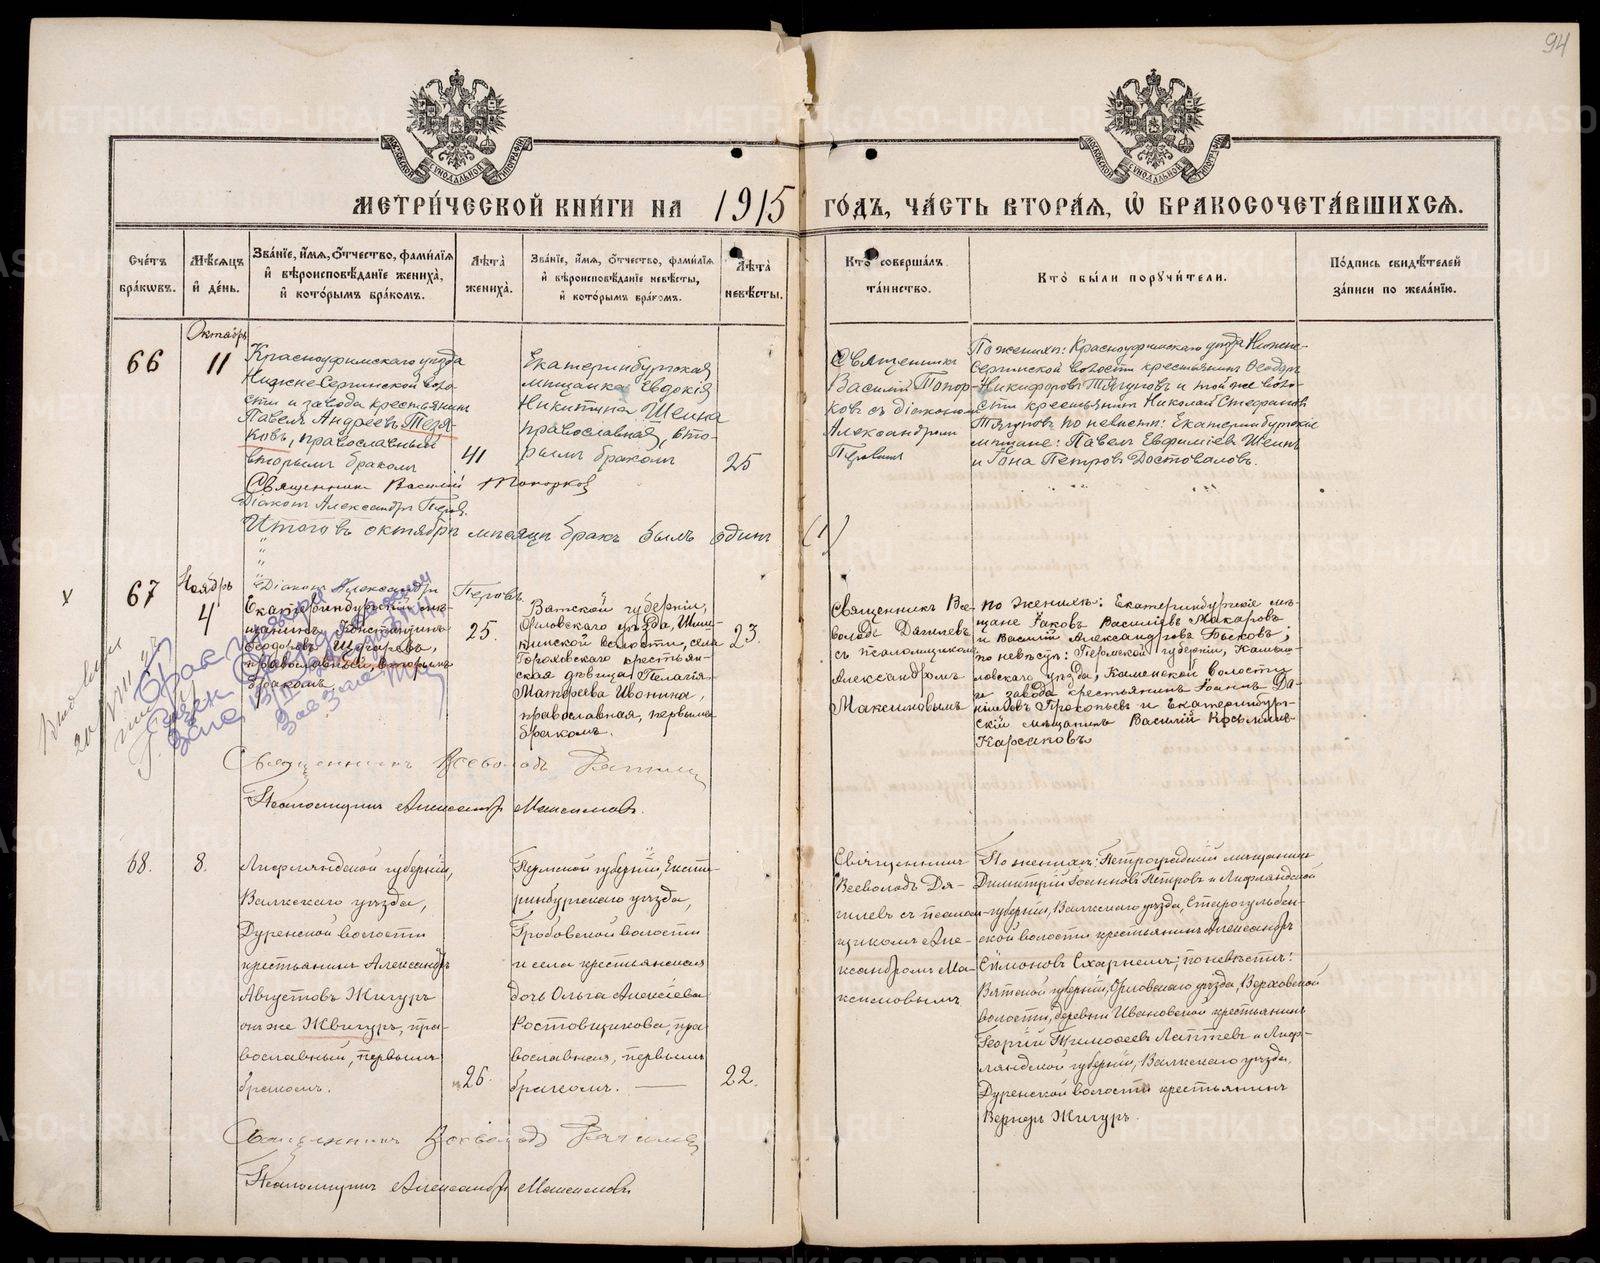 94
МОСКОВСКОЙ СѴНОДАЛЬНОЙ ТИПОГРАФІИ
МОСКОВСКОЙ СѴНОДАЛЬНОЙ ТИПОГРАФІИ
МЕТРИ́ЧЕСКОЙ КНИ́ГИ НА 1915 ГО́ДЪ, ЧА́СТЬ ВТОРА́Я, Ѡ БРАКОСОЧЕТА́ВШИХСЯ.
Сче́тъ бра́кѡвъ.
Мѣ́сяцъ и де́нь.
Зва́ніе, и́мя, о́тчество, фами́лія и вѣроисповѣ́даніе жениха̀, и кото́рымъ бра́комъ.
Лѣта̀ жениха̀.
Зва́ніе, и́мя, о́тчество, фами́лія и вѣроисповѣ́даніе невѣ́сты, и кото́рымъ бра́комъ.
Лѣта̀ невѣ́сты.
Кто̀ соверша́лъ та́инство.
Кто̀ бы́ли поручи́тели.
По́дпись свидѣ́телей за́писи по жела́нію.
66
Октябрь
11
Красноуфимскаго уѣзда
Нижне-Сергинской воло-
сти и завода крестьянинъ
Павелъ Андреевъ Тезя-
ковъ, православный
вторымъ бракомъ
41
Екатеринбургская
мѣщанка Евдокія
Никитина Шеина
православная, вто-
рымъ бракомъ
25
Священникъ
Василій Топор-
ковъ съ діакономъ
Александромъ
Перовымъ
По женихѣ: Красноуфимскаго уѣзда Нижне-
Сергинской волости крестьянинъ Ѳеодоръ
Никифоровъ Тягуновъ и той же воло-
сти крестьянинъ Николай Стефановъ
Тягуновъ по невѣстѣ: Екатеринбургскіе
мѣщане: Павелъ Евфиміевъ Шеинъ
и Іона Петровъ Достоваловъ.
Священникъ Василій Топорковъ
Діаконъ Александръ Перовъ.
Итого въ октябрѣ мѣсяцѣ бракъ былъ одинъ (1)
Діаконъ Александръ Перовъ
х
67
Ноябрь
4
Екатеринбургскій мѣ-
щанинъ Константинъ
Ѳеодоровъ
православный, вторымъ
бракомъ
25.
Вятской губерніи,
Орловскаго уѣзда,
волости, села
Гороховскаго крестьян-
ская дѣвица Пелагія
Матѳеева Ивонина,
православная, первымъ
бракомъ.
23.
Священникъ Все-
володъ Дягилевъ
съ псаломщикомъ
Александромъ
Максимовымъ
по женихѣ: Екатеринбургскіе мѣ-
щане Іаковъ Василіевъ Макаровъ
и Василій Александровъ Быковъ;
по невѣстѣ: Пермской губерніи, Камыш-
ловскаго уѣзда, Каменской волости
и завода крестьянинъ Іоаннъ Да-
ніиловъ Прокопьевъ и Екатеринбург-
скій мѣщанинъ Василій Косьминъ
Карсаковъ
Брак
Священникъ Всеволодъ Дягилевъ
Псаломщикъ Александръ Максимовъ.
68.
8.
Лифляндской губерніи,
Валкскаго уѣзда,
Дуренской волости
крестьянинъ Александръ
Августовъ Жигуръ
онъ же Жвигуръ, пра-
вославный, первымъ
бракомъ.
26.
Пермской губерніи, Екате-
ринбургскаго уѣзда,
Гробовской волости
и села крестьянская
дочь Ольга Алексіева
Ростовщикова, пра-
вославная, первымъ
бракомъ.
22.
Священникъ
Всеволодъ Дя-
гилевъ съ псалом-
щикомъ Але-
ксандромъ Ма-
ксимовымъ
По женихѣ: Петроградскій мѣщанинъ
Димитрій Іоанновъ Петровъ и Лифляндской
губерніи, Валкскаго уѣзда, Старогульбен-
ской волости крестьянинъ Александръ
Симоновъ Схарнемъ; по невѣстѣ:
Вятской губерніи, Орловскаго уѣзда, Верховской
волости, деревни Ивановской крестьянинъ
Георгій Тимоѳеевъ Лаптевъ и Лиф-
ляндской губерніи, Валкскаго уѣзда,
Дуренской волости крестьянинъ
Вернеръ Жигуръ.
Священникъ Всеволодъ Дягилевъ
Псаломщикъ Александръ Максимовъ
METRIKI.GASO-URAL.RU